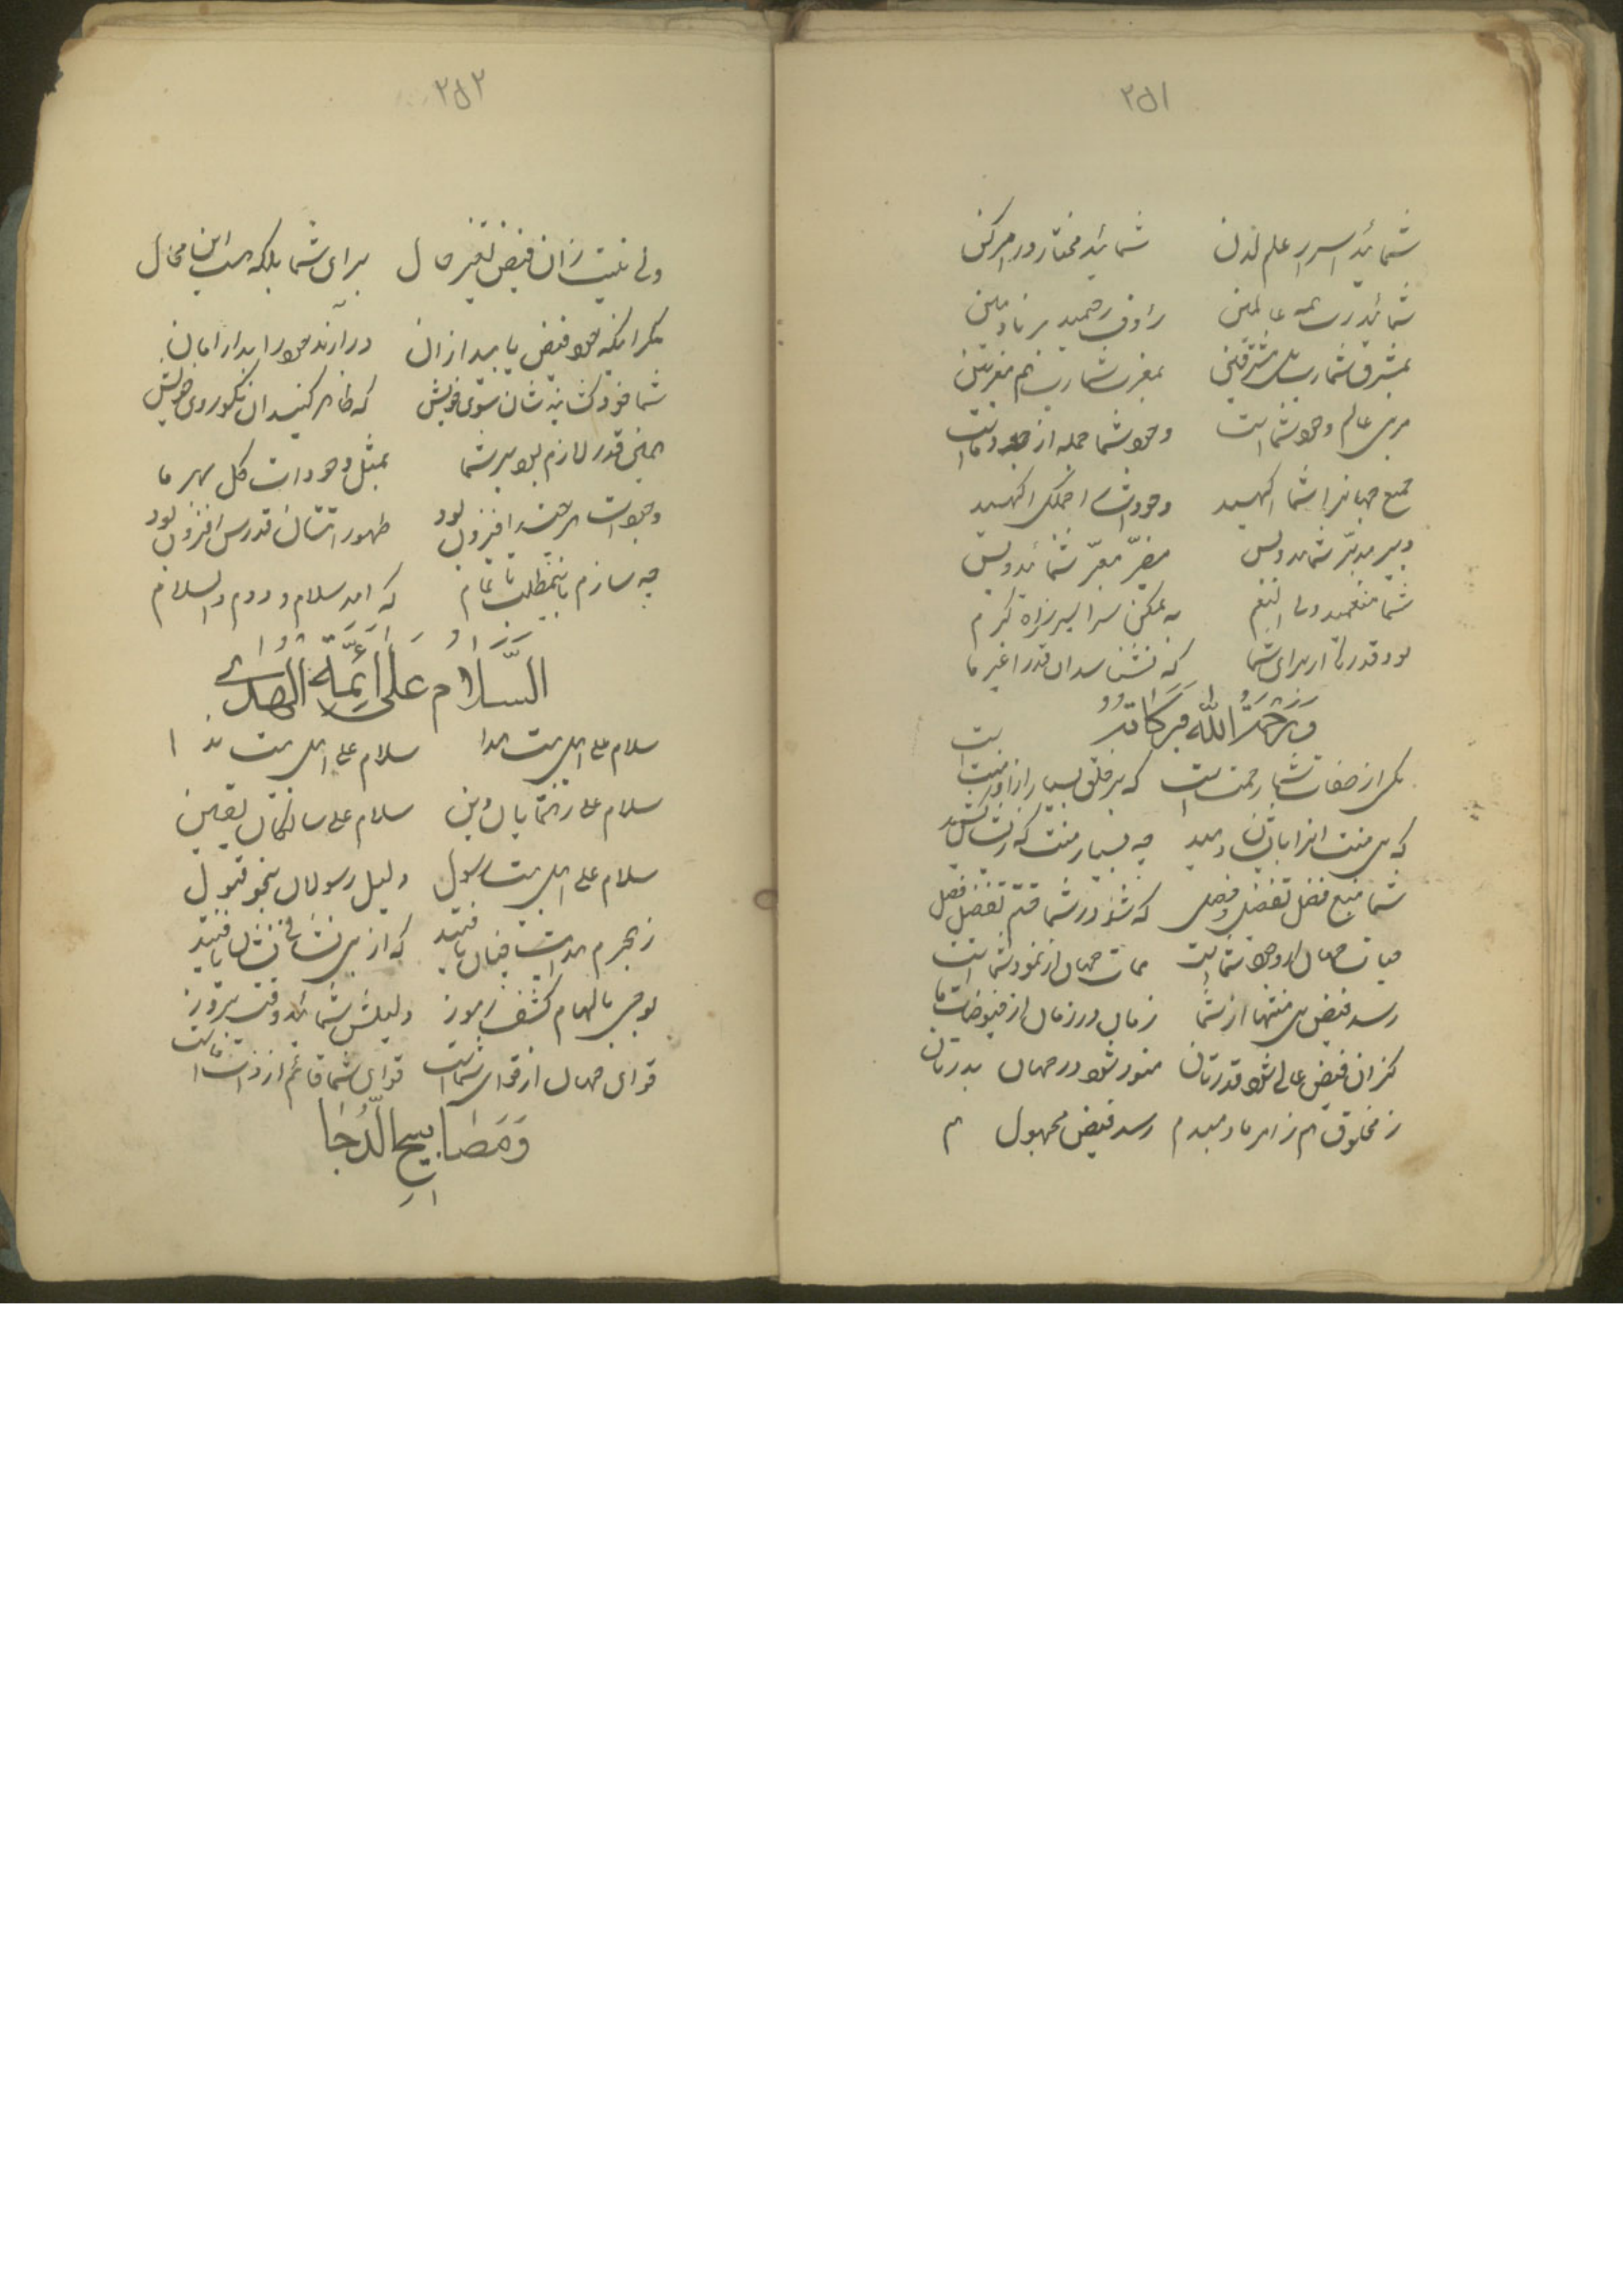 ۲۵۱
شمائید اسرار علم لدن شمائید مختار در امر کن
شمائید رب همه عالمین رؤف رحمید بر نادمین
بمشرق شما رب مشرقین بمغرب شما رب هم مغربین
مربی عالم وجود شما است وجود شما جمله از جود ما است
جمیع جهانرا شما الهید
دبیر مدبر شمائید و بس مضر مقر شمائید و بس
شما منعمید و النعم به ممکن سراسر ز راه کرم
بود قدرتی از برای شما که نشناسد آن قدر غیر ما
وَرَحْمَةُ اللّٰهِ وَبَرَكَاتُهُ
یکی از صفات شما رحمت است که بر خلق بسیار از او منت است
که بی منت چه بسیار منت که
شما منبع فضل تفضل وفصل که شد در شما ختم تفضل فصل
حیات جهان از وجود شما است ممات جهان از نمود شما است
رسد فیض بی منتها از شما زمان در زمان از فیوضات ما
کز آن فیض عالی شود قدرتان منور شود در جهان بدرتان
ز مخلوق هم ز امر ما دمبدم رسد فیض مجهول هم
۲۵۲
ولی نیست زان فیض تغییر حال برای شما بلکه هست این محال
مگر آنکه خود فیض یابید از آن درآرند خود را بدار امان
شما خود کشانید شان سوی خویش که ظاهر کنید آن نکو روی خویش
همین قدر لازم بود بر شما بمثل وجودات کل بهر ما
وجودات هر چند افزون بود ظهورات شان قدرش افزون بود
چه سازم باینمطلب تمام که آمد سلام و درود والسلام
السَّلَامُ عَلَى أَئِمَّةِ الْهُدَى
سلام علی اهل بیت هدا سلام علی اهل بیت ندا
سلام علی رهنمایان دین سلام علی سالکان یقین
سلام علی اهل بیت رسول دلیل رسولان بنحو قبول
ز بحرم هدایت چنان یافتید که از بی نشانی نشان یافتید
بوحی بالهام کشف رموز دلیلش شمائید وقت بروز
قوای جهان از قوای شما است قوای شما قائم از ذات ما است
وَمَصَابِيحِ الدُّجَا